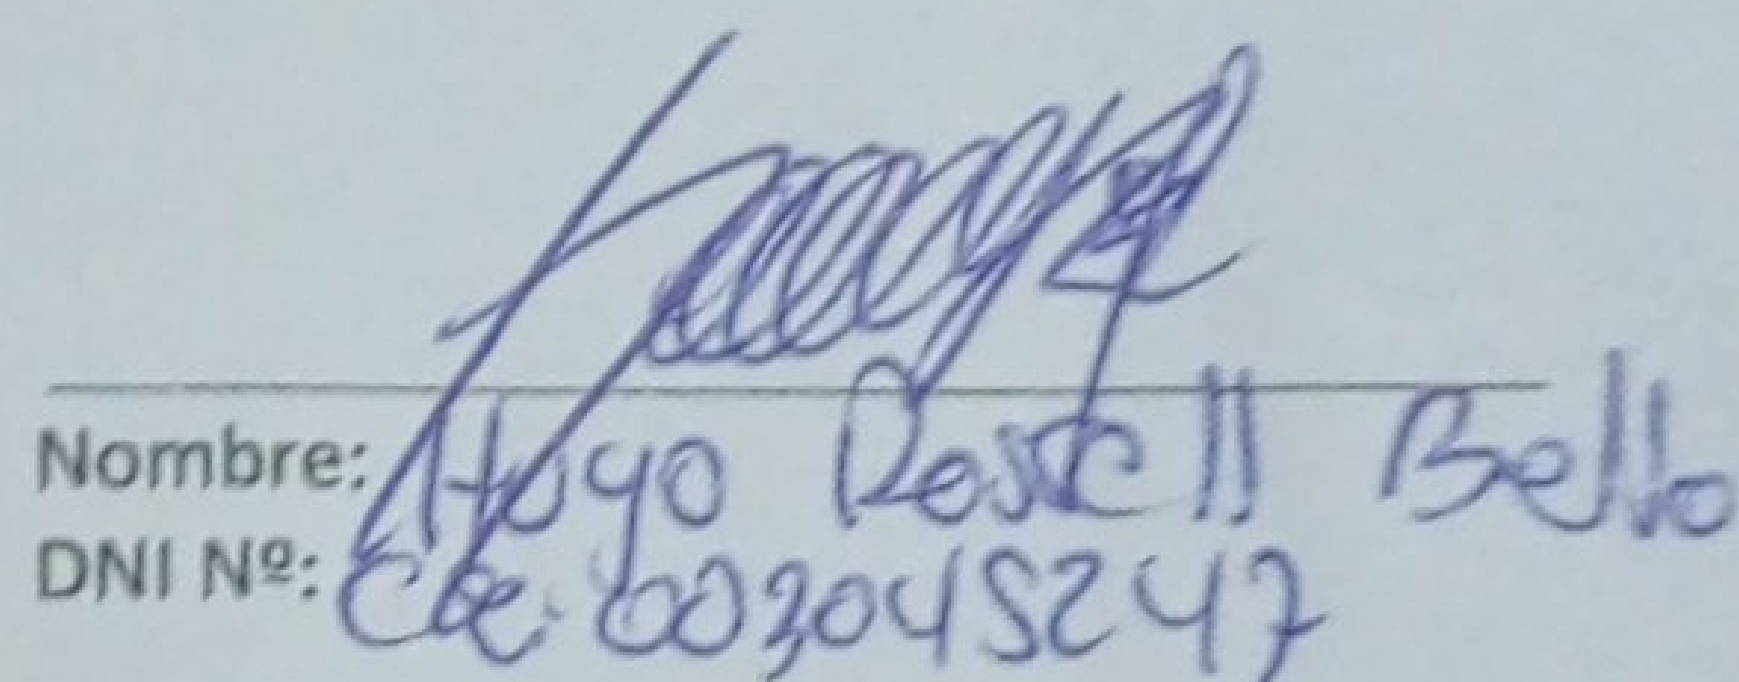 Nombre: Hoyo Rosell Bello
DNI Nº: Ce: 003045247